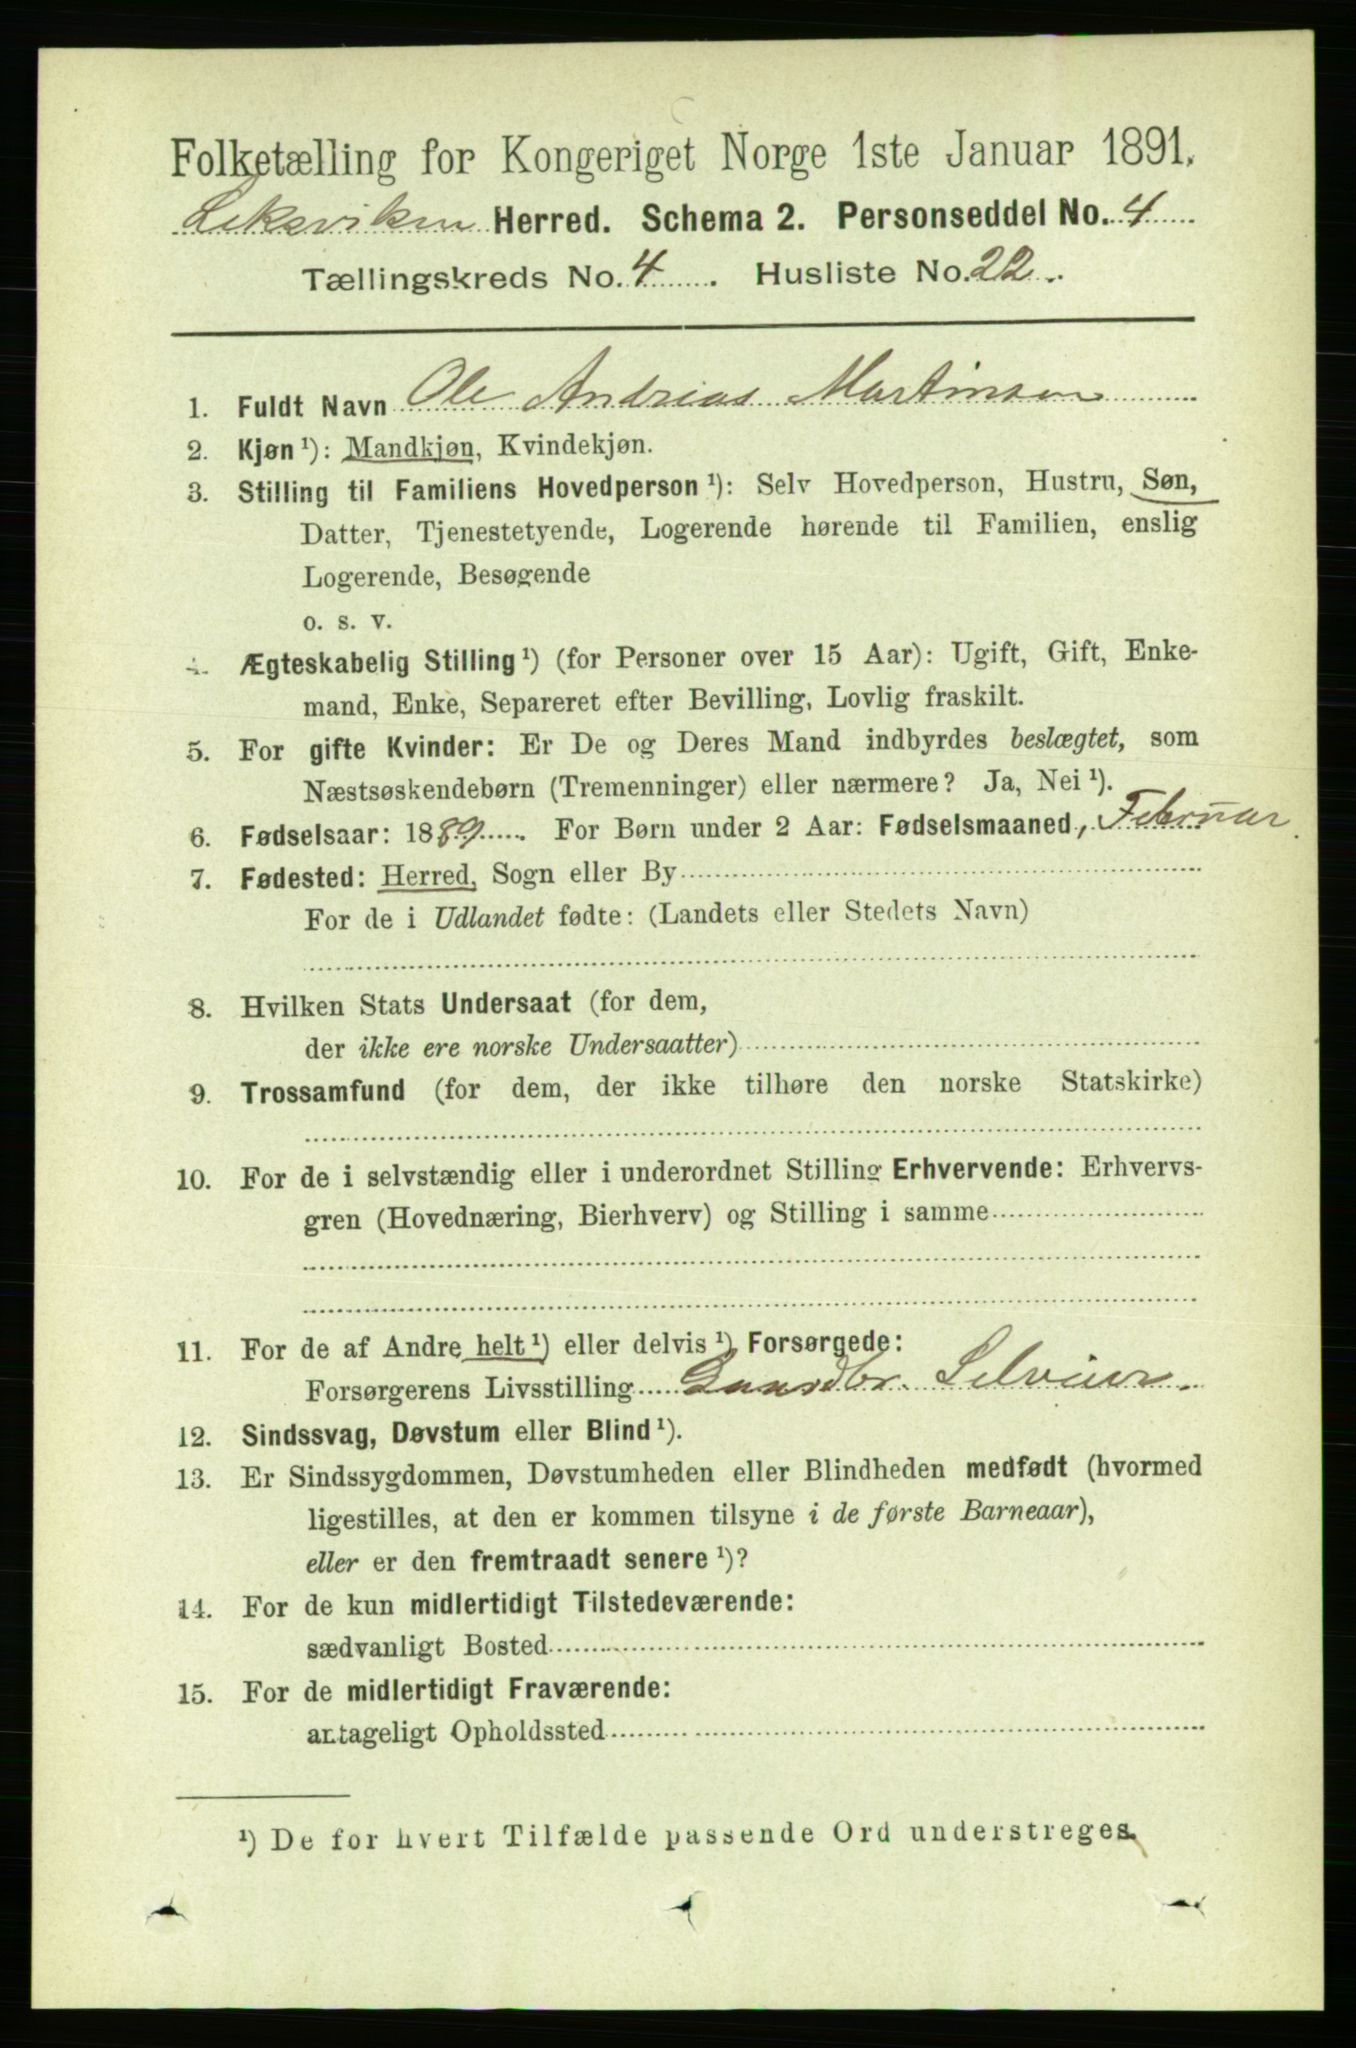 Folketælling for Kongeriget Norge 1ste Januar 1891.
Leksviken Herred. Schema 2. Personseddel No. 4
Tællingskreds No. 4. Husliste No. 22.
1. Fuldt Navn Ole Andrias Martinsen
2. Kjøn ¹): Mandkjøn, Kvindekjøn.
3. Stilling til Familiens Hovedperson ¹): Selv Hovedperson, Hustru, Søn,
Datter, Tjenestetyende, Logerende hørende til Familien, enslig
Logerende, Besøgende
o. s. v.
4. Ægteskabelig Stilling ¹) (for Personer over 15 Aar): Ugift, Gift, Enke-
mand, Enke, Separeret efter Bevilling, Lovlig fraskilt.
5. For gifte Kvinder: Er De og Deres Mand indbyrdes beslægtet, som
Næstsøskendebørn (Tremenninger) eller nærmere? Ja, Nei ¹).
6. Fødselsaar: 1889. For Børn under 2 Aar: Fødselsmaaned, Februar.
7. Fødested: Herred, Sogn eller By
For de i Udlandet fødte: (Landets eller Stedets Navn)
8. Hvilken Stats Undersaat (for dem,
der ikke ere norske Undersaatter)
9. Trossamfund (for dem, der ikke tilhøre den norske Statskirke)
10. For de i selvstændig eller i underordnet Stilling Erhvervende: Erhvervs-
gren (Hovednæring, Bierhverv) og Stilling i samme
11. For de af Andre helt ¹) eller delvis ¹) Forsørgede:
Forsørgerens Livsstilling Gaardbr. Selveier.
12. Sindssvag, Døvstum eller Blind ¹).
13. Er Sindssygdommen, Døvstumheden eller Blindheden medfødt (hvormed
ligestilles, at den er kommen tilsyne i de første Barneaar),
eller er den fremtraadt senere ¹)?
14. For de kun midlertidigt Tilstedeværende:
sædvanligt Bosted
15. For de midlertidigt Fraværende:
antageligt Opholdssted
¹) De for hvert Tilfælde passende Ord understreges.